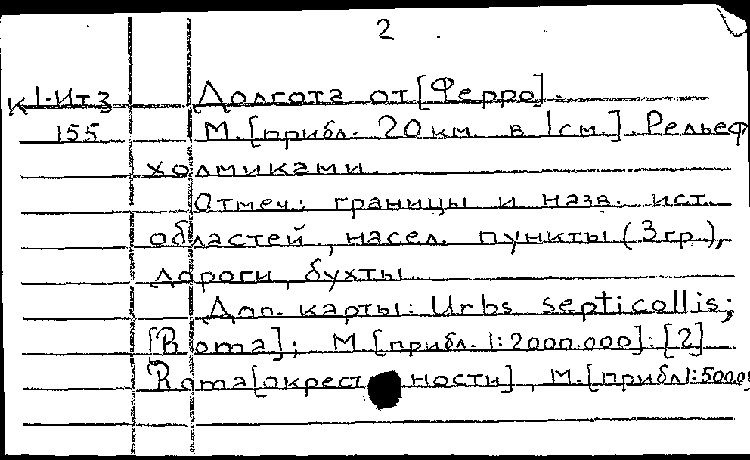 2
К 1-Ит3 Долгота от [Ферро].
155 М. [прибл. 20 км в 1 см]. Рельеф
холмиками.
Отмеч.: границы и назв. ист.
областей, насел. пункты (3 гр.),
дороги, бухты.
Доп. карты: Urbs septicollis;
[Roma]; М. [прибл. 1:2000.000]. [2]
Roma [окрестности], М. [прибл 1:5000